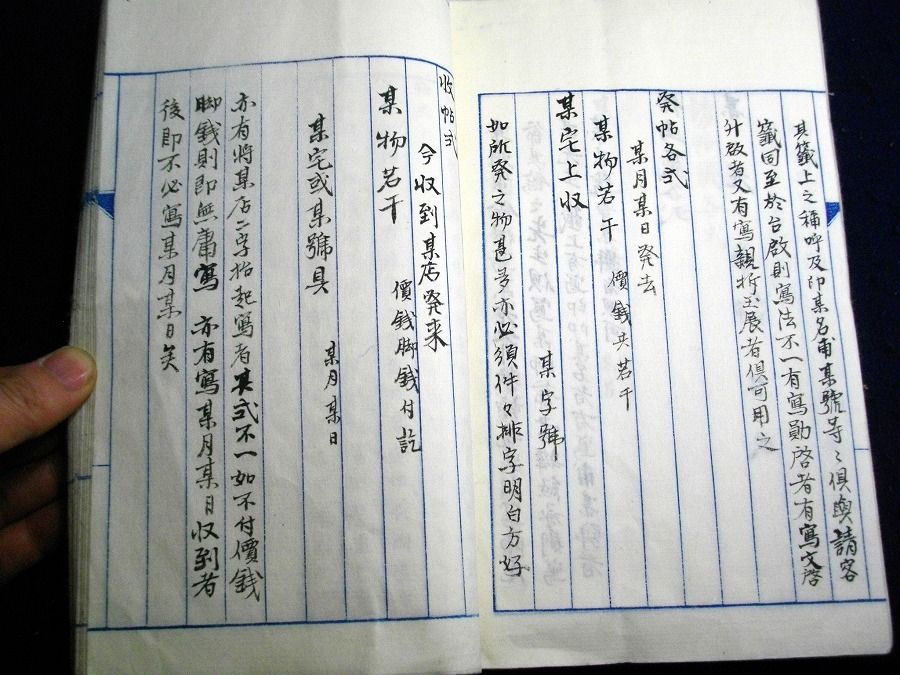 其籤上之稱呼及印某名甫某號等〻俱與請客
籤同至於台啟則寫法不一有寫勛啓者有寫文啓
升啟者又有寫親拆玉展者俱可用之
発帖各式
某月某日発去
某物若干 價錢共若干
某宅上收 某字號
如所発之物甚多亦必須件々排字明白方好
收帖式
今收到某店発来
某物若干 價錢脚錢付訖
某宅或某號具 某月某日
亦有將某店二字抬起寫者其式不一如不付價錢
脚錢則即無庸寫 亦有寫某月某日收到者
後即不必寫某月某日矣